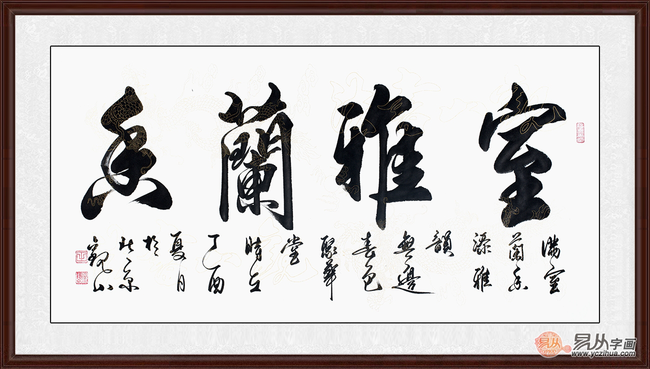 室雅蘭香
滿室
蘭香
添雅
韻
無邊
春色
聚華
堂
時在
丁酉
夏月
於
北京
觀山
易从
易从字画
www.yczihua.com